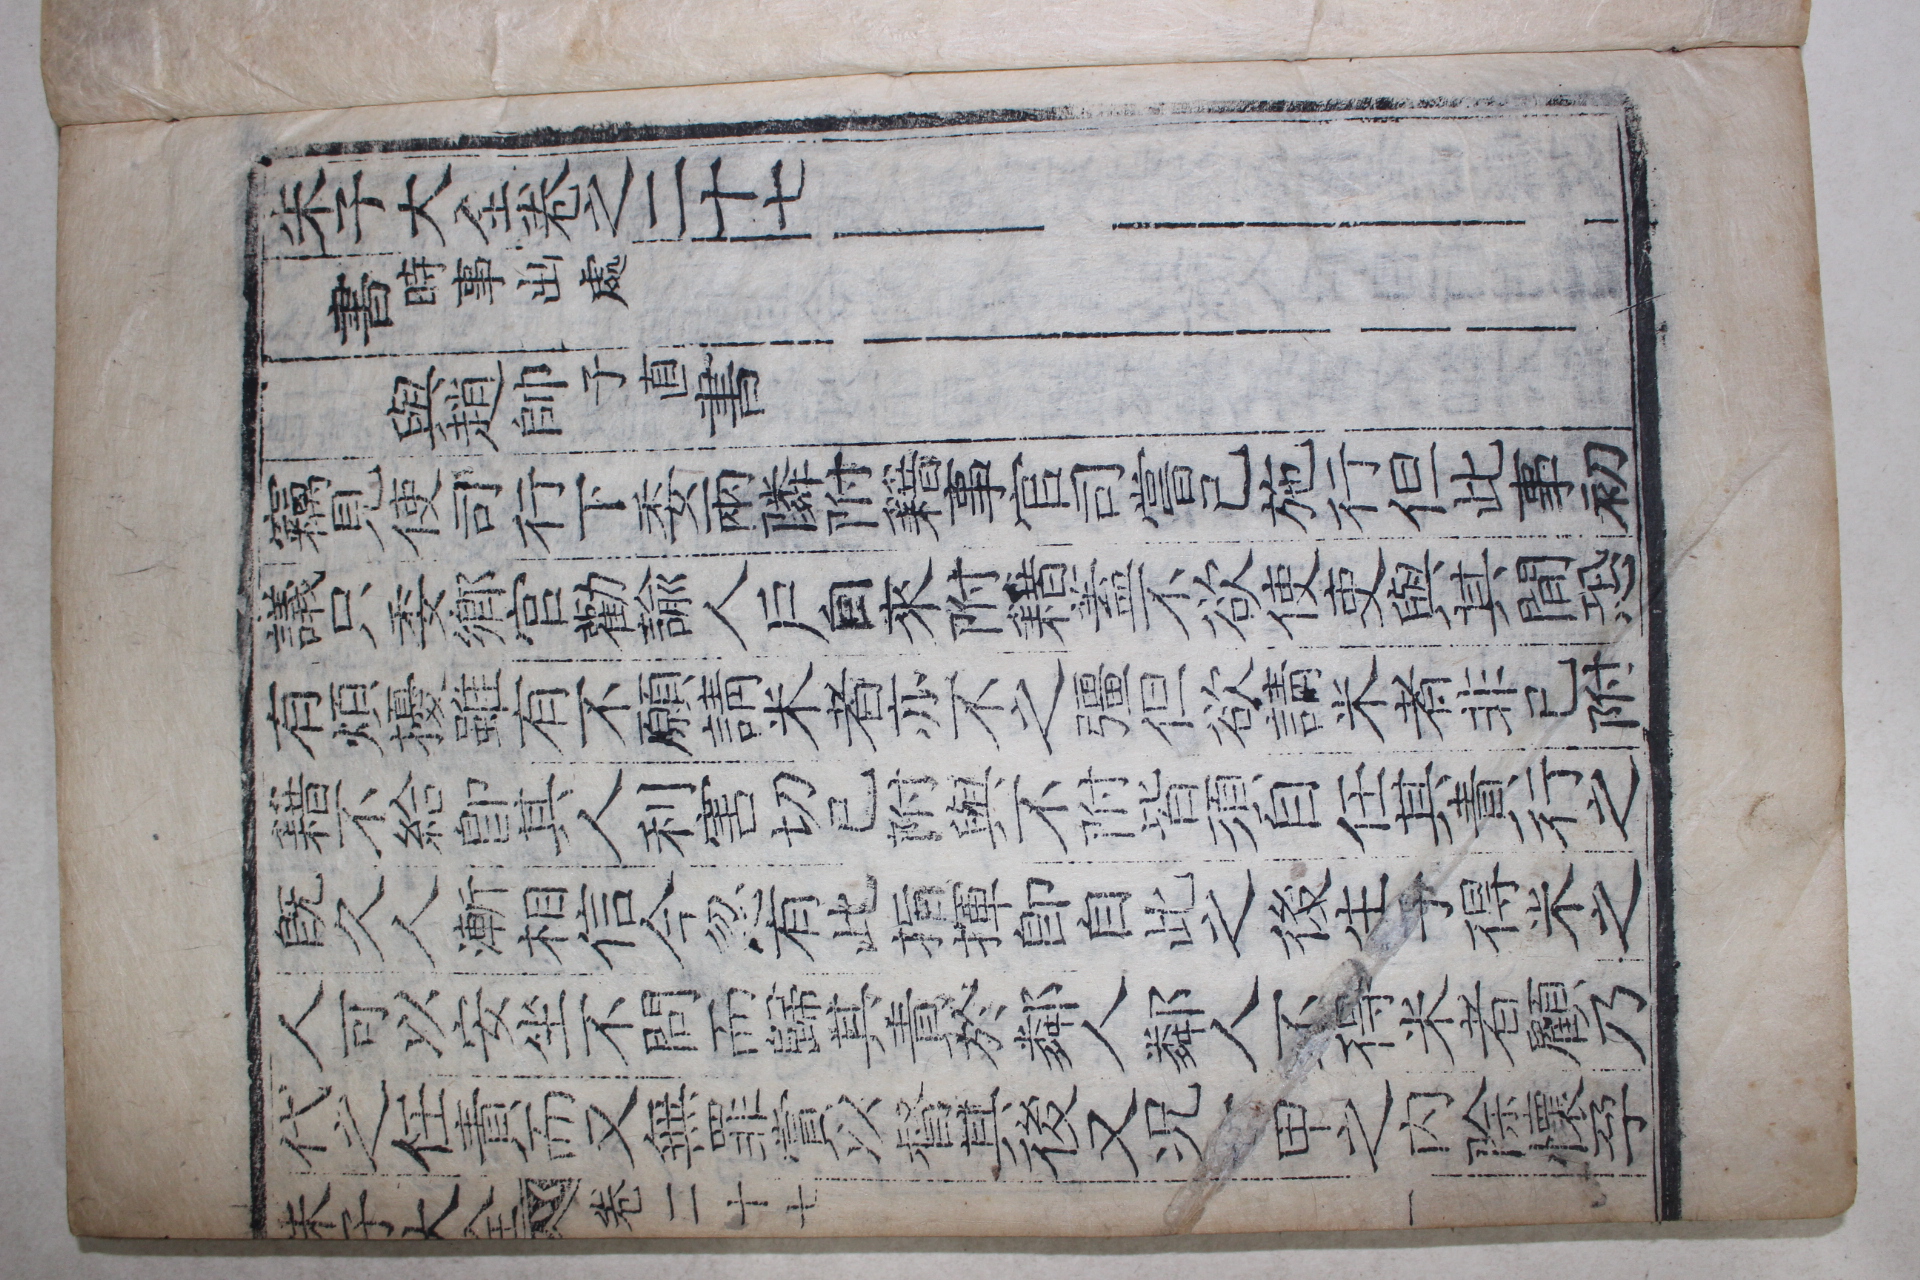 朱子大全卷之二十七
書時事出處
與趙帥子直書
竊見使司行下委兩隣附籍事官司嘗已施行但此事初
議只委鄕官勸諭人戶自來附籍盖不欲使吏與其間恐
有煩擾雖有不願請米者亦不之彊但欲請米者非已附
籍不給卽其人利害切己附與不附皆須自任其責行之
旣久人漸相信今忽有此指揮卽自此之後生子得米之
人可以安坐不問而歸其責於鄰人鄰人不得米者顧乃
代之任責而又無罪賞以督其後又況 甲之內險隩孕
朱子大全 卷二十七 一